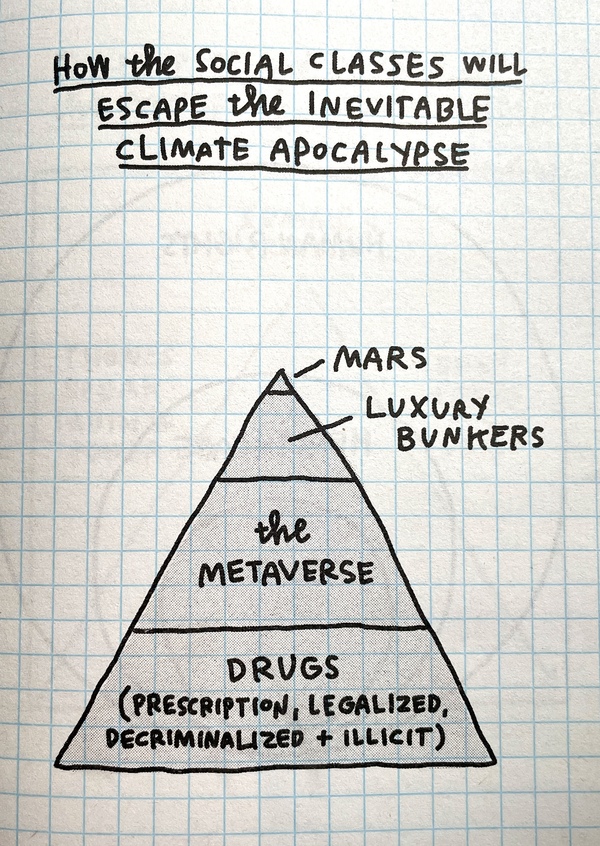 HOW the SOCIAL CLASSES WILL
ESCAPE the INEVITABLE
CLIMATE APOCALYPSE
MARS
LUXURY
BUNKERS
the
METAVERSE
DRUGS
(PRESCRIPTION, LEGALIZED,
DECRIMINALIZED + ILLICIT)